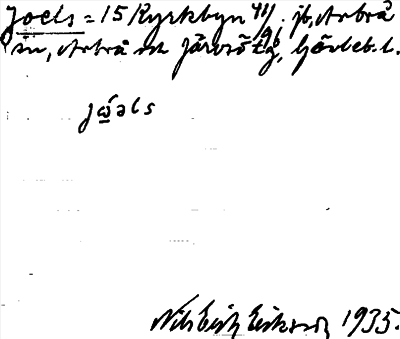 Joels = 15 Kyrkbyn 4/1 96. jb, Arbrå
sn, Arbrå och Järvsö tg, Gävleb. l.
jώəls
Nils Erik Eriksson 1935.